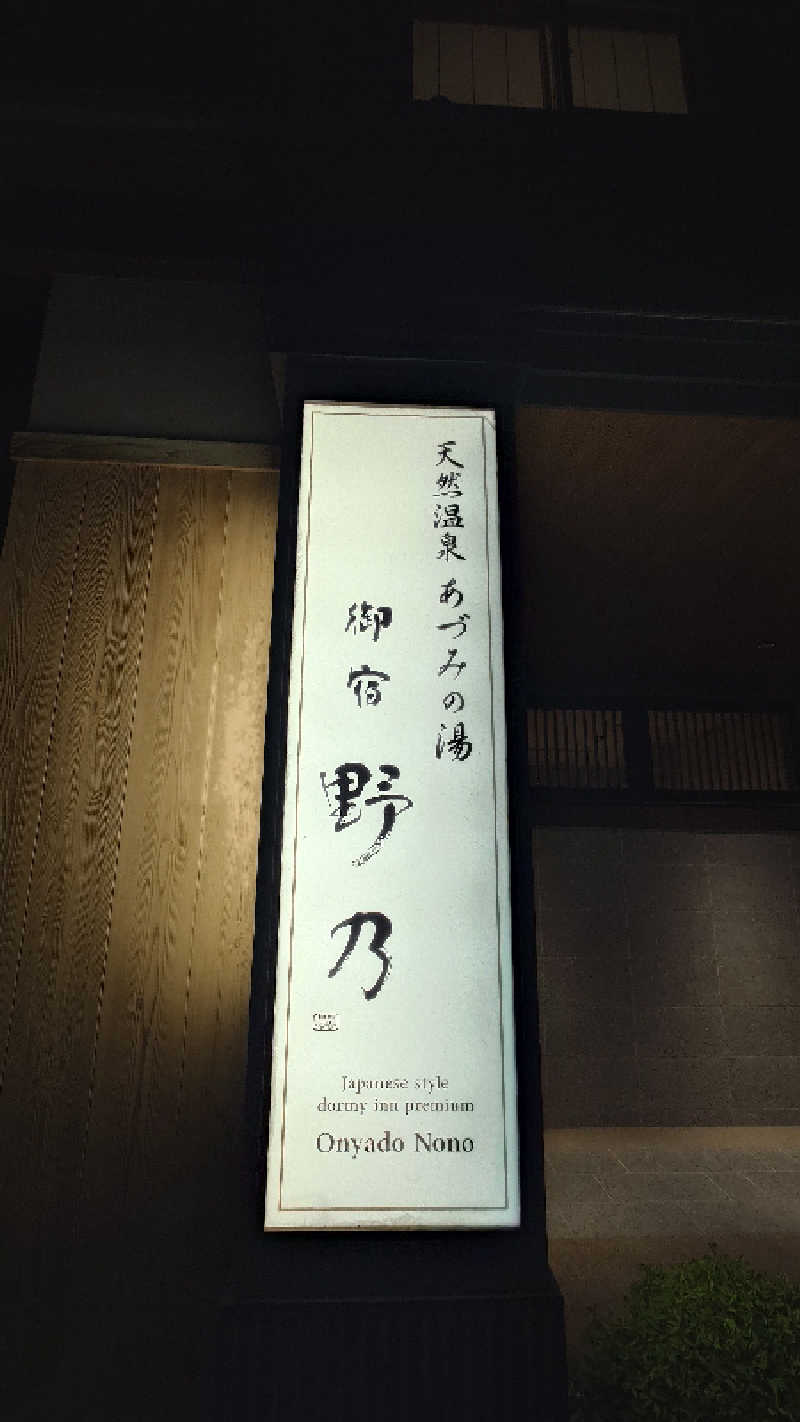 天然温泉 あづみの湯
御宿 野乃
Japanese style
dormy inn premium
Onyado Nono